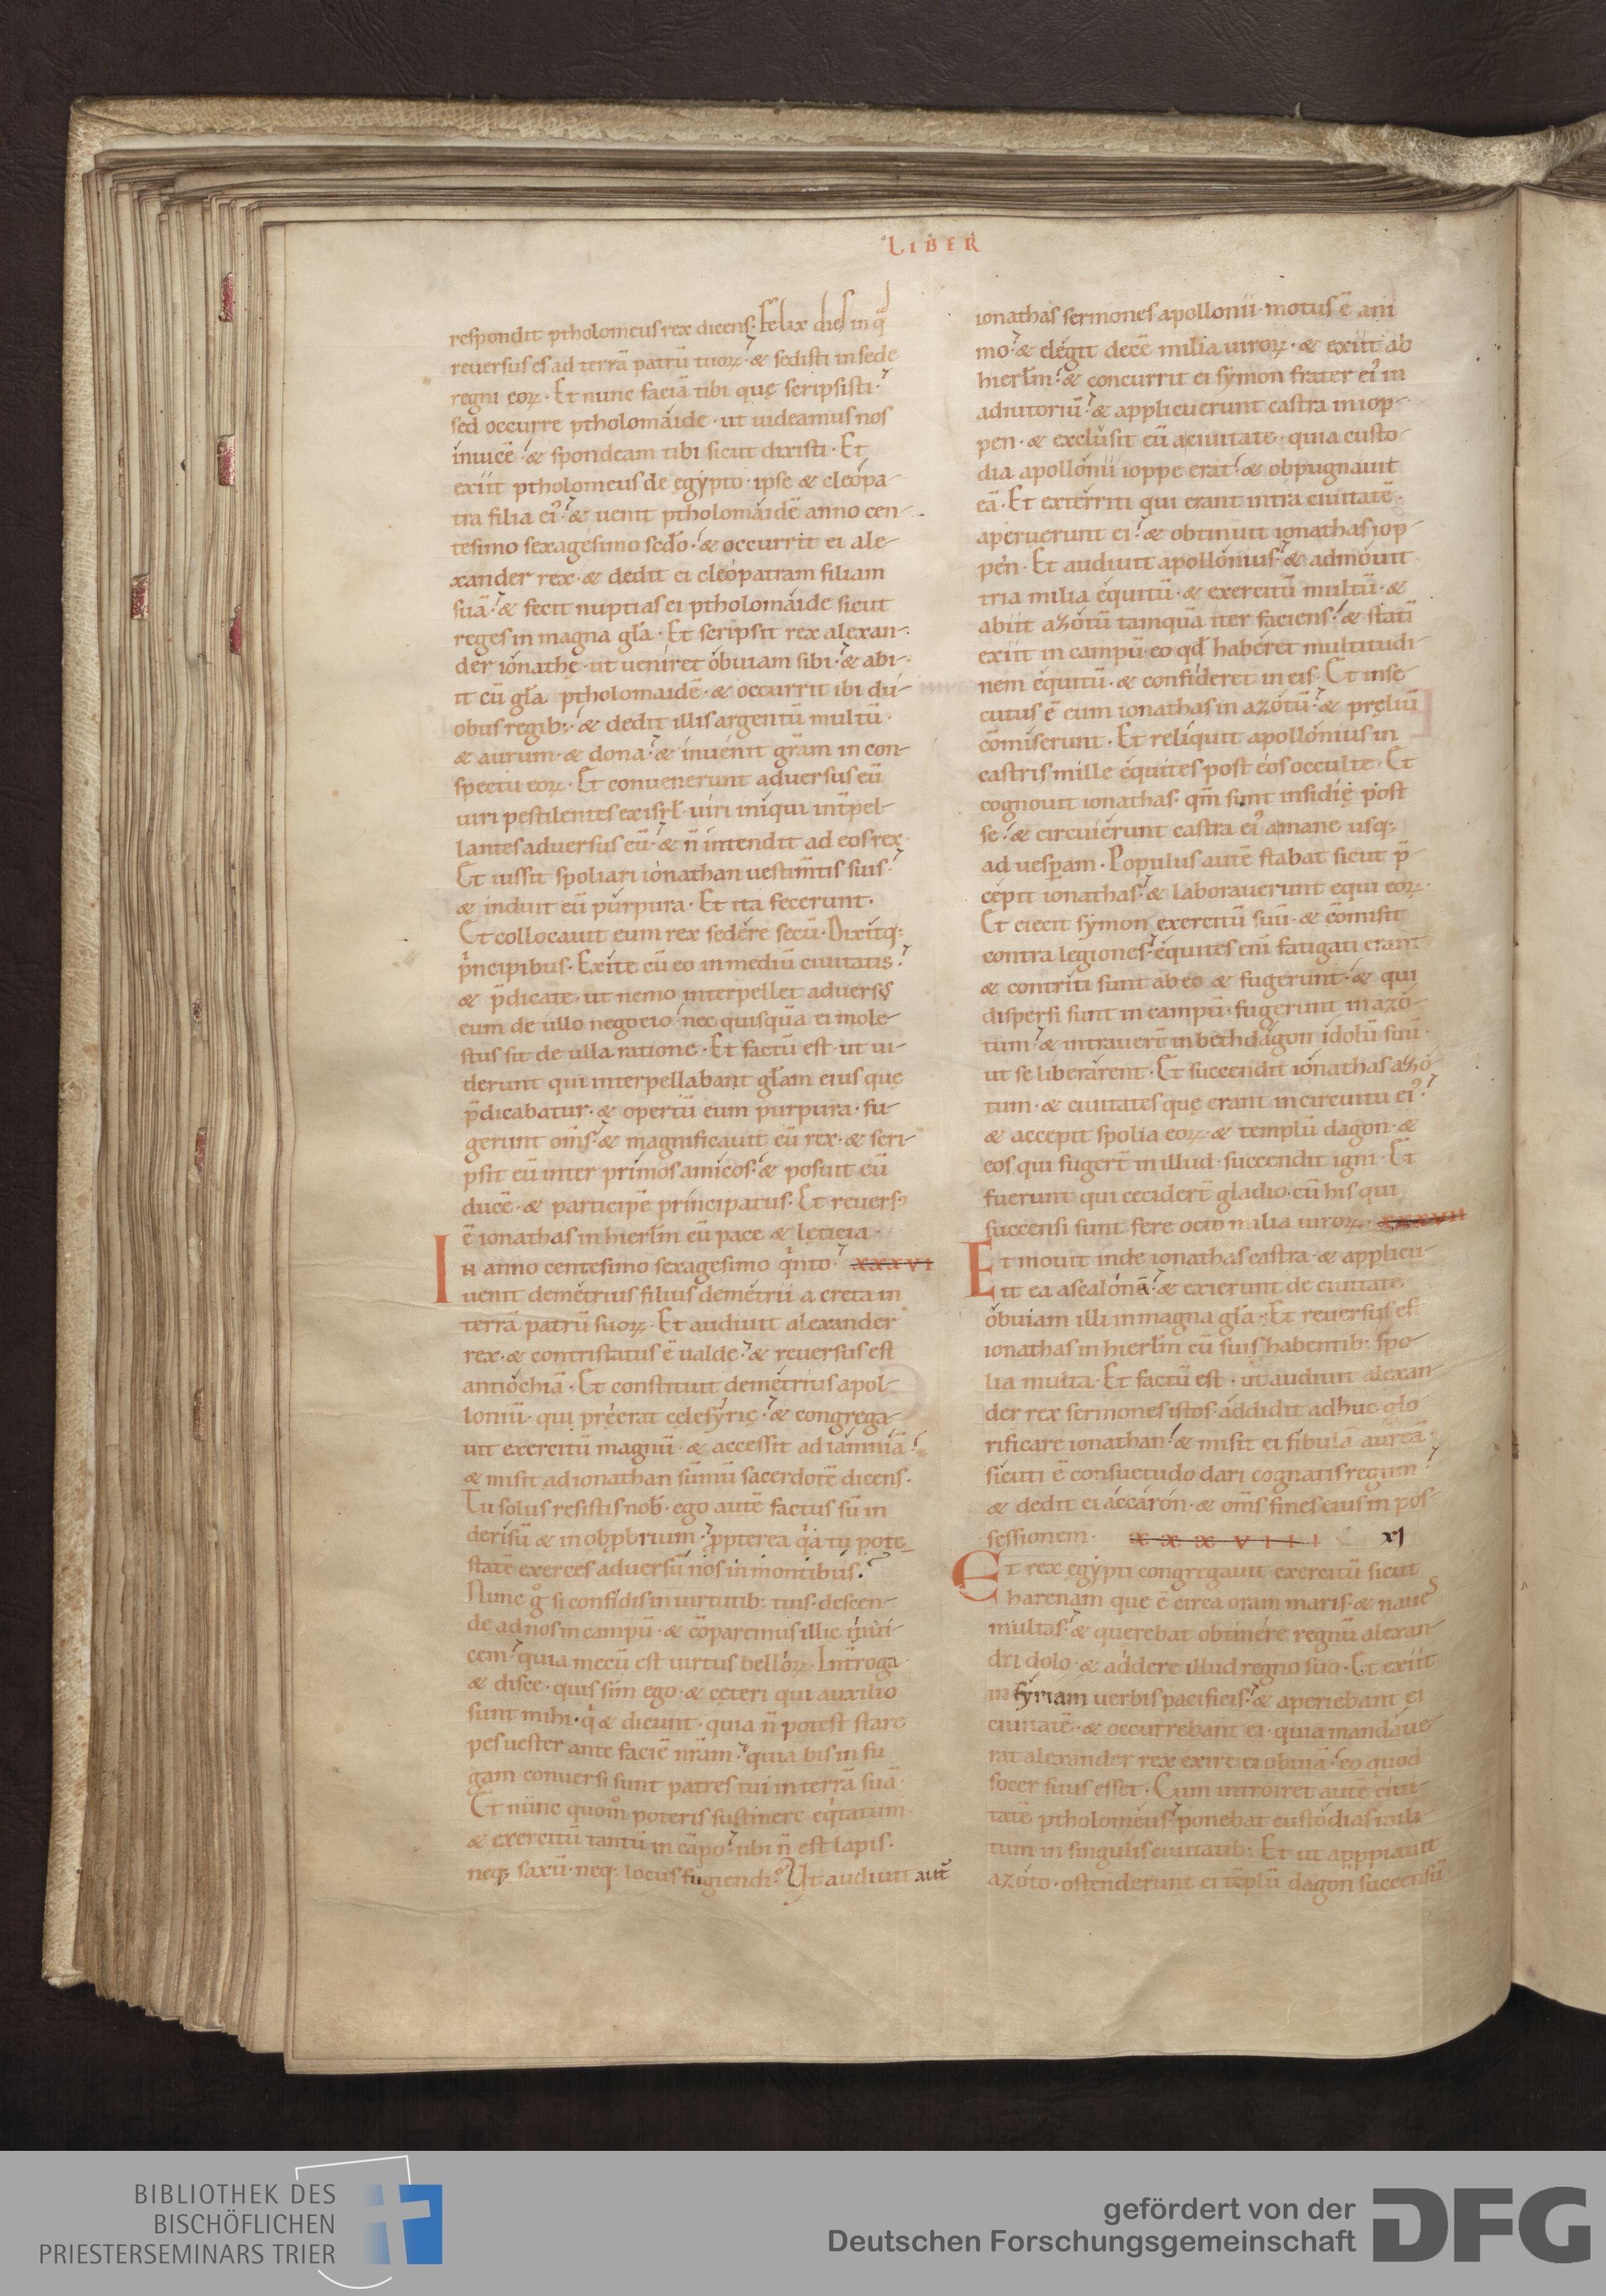 LIBER
respondit ptholomeus rex dicens· Felix dies in q̄
reuersus es ad terrā patrū tuoꝝ· & sedisti in sede
regni eoꝝ· Et nunc faciā tibi quę scripsisti·
sed occurre ptholomáide· ut uideamus nos
inuicē· & spondeam tibi sicut dixisti· Et
exiit ptholomeus de egýpto· ipse & cleópa-
tra filia ei᾽· & uenit ptholomáidē anno cen-
tesimo sexagesimo scđo· & occurrit ei ale-
xander rex· & dedit ei cleópatram filiam
suā· & fecit nuptias ei ptholomáide sicut
reges in magna gła· Et scripsit rex alexan-
der iónathę· ut ueniret óbuiam sibi· & abi-
it cū gła ptholomaidē· & occurrit ibi dú-
obus regib;· & dedit illis argentū multū·
& aurum· & dona· & inuenit grām in con-
spectu eoꝝ· Et conuenerunt aduersus eū
uiri pestilentes ex isrł· uiri iniqui int̄pel-
lantes aduersus eū· & n̄ intendit ad eos rex·
Et iussit spoliari iónathan uestim̄tis suis·
& induit eū púrpura· Et ita fecerunt·
Et collocauit eum rex sedére secū· Dixitq;
pͥncipibus· Exíte cū eo in mediū ciuitatis·
& p̄dicate· ut nemo interpellet aduersꝰ
eum de ullo negocio· nec quisquā ei mole-
stus sit de ulla ratione· Et factū est· ut ui-
derunt qui interpellabant głam eius quę
p̄dicabatur· & opertū eum purpura· fu-
gerunt om̄s· & magnificauit eū rex· & scri-
psit eū inter primos amicos· & posuit eū
ducē· & participē principatus· Et reuersꝰ
ē ionathas in hierłm cū pace & lęticia·
In anno centesimo sexagesimo qͥnto· xxxvi
uenit demétrius filius demétrii a creta in
terrā patrū suoꝝ· Et audiuit alexander
rex· & contristatus ē ualde· & reuersus est
antióchiā· Et constituit demetrius apol-
loniū· qui pręerat celesýrię· & congrega-
uit exercitū magnū· & accessit ad iámniā·
& misit ad ionathan sūmū sacerdotē dicens·
Tu solus resistis nob̄· ego autē factus sū in
derisū & in obꝓbrium· ꝓpterea qͥa tu pote-
statē exerces aduersū nos in montibus·
Nunc gͦ si confidis in uirtutib; tuis· descen-
de ad nos in campū· & cōparemus illic inui-
cem· quia mecū est uirtus bellóꝝ· Int̄roga
& disce· quis sim ego· & ceteri qui auxilio
sunt mihi· qͥ & dicunt· quia n̄ potest stare
pes uester ante faciē nrām· quia bis in fu
gam conuersi sunt patres tui in terrā suā·
Et nunc quom̊ poteris sustinere eqͥtatum
& exercitū tantū in cāpo· ubi n̄ est lapis·
neq; saxū· neq; locus fugiendi· Vt audiuit aut̄
ionathas sermones apollonii· motus ē ani
mo· & elégit decē milia uiroꝝ· & exiit ab
hierłm· & concurrit ei sýmon frater ei᾽ in
adiutoriū· & applicuerunt castra in iop-
pen· & exclúsit eū a ciuitate· quia custo-
dia apollónii ioppe erat· & obpugnauit
eā· Et extérriti qui erant intra ciuitatē·
aperuerunt ei· & obtinuit ionathas iop-
pén· Et audiuit apollónius· & admóuit
tria milia équitū· & exercitū multū· &
abiit azótū tamquā iter faciens· & statī
exiit in campū· eo qđ habéret multitudi-
nem équitū· & confideret in eis· Et inse-
cutus ē eum ionathas in azótū· & pręliū
cōmiserunt· Et relíquit apollónius in
castris mille équites post éos occulte· Et
cognouit ionathas· qm̄ sunt insidię post
se· & circuiérunt castra ei᾽ a mane usq;
ad uesꝑam· Populus autē stabat sicut p̄
cépit ionathas· & laborauerunt equi eoꝝ·
Et eiecit sýmon exercitū suū· & cōmisit
contra legiones· équites eni fatigati erant
& contriti sunt ab eo & fugerunt· & qui
dispersi sunt in campū· fugerunt in azó-
tum· & intrauert̄ in bethdágon idolū suū·
ut se liberárent· Et succendit iónathas azó-
tum· & ciuitates quę erant in circuitu ei᾽·
& accepit spolia eoꝝ· & templū dagon· &
eos qui fugert̄ in illud· succendit igni· Et
fuerunt qui cecidert̄ gladio· cū his qui
succensi sunt fere octo milia uiroꝝ· xxxvii
Et mouit inde ionathas castra· & applicu-
it ea ascalónā· & exierunt de ciuitate
óbuiam illi in magna gła· Et reuersus es̄
ionathas in hierłm cū suis habentib; spo-
lia multa· Et factū est· ut audiuit alexan-
der rex sermones istos· áddidit adhuc glo
rificare ionathan· & misit ei fíbulā aúreā·
sicuti ē consuetudo dari cognatis regum·
& dedit ei áccarón· & om̄s fines eius in pos-
sessionem· xxxviii xj
Et rex egýpti congregauit exercitū sicut
harenam que ē circa oram maris· & naues
multas· & querebat obtinére regnū alexan-
dri dolo· & áddere illud regno suo· Et exiit
in sýriam uerbis pacificis· & aperiebant ei
ciuitatē· & occurrebant ei· quia mandáue-
rat alexander rex exire ei obuiā· eo quod
socer suus esset· Cum introiret autē ciui-
tatē ptholoméus· ponebat custódias mili
tum in singulis ciuitatib;· Et ut appꝓpiauit
azóto· ostenderunt ei tēplū dagon succensū
BIBLIOTHEK DES
BISCHÖFLICHEN
PRIESTERSEMINARS TRIER
gefördert von der
Deutschen Forschungsgemeinschaft
DFG